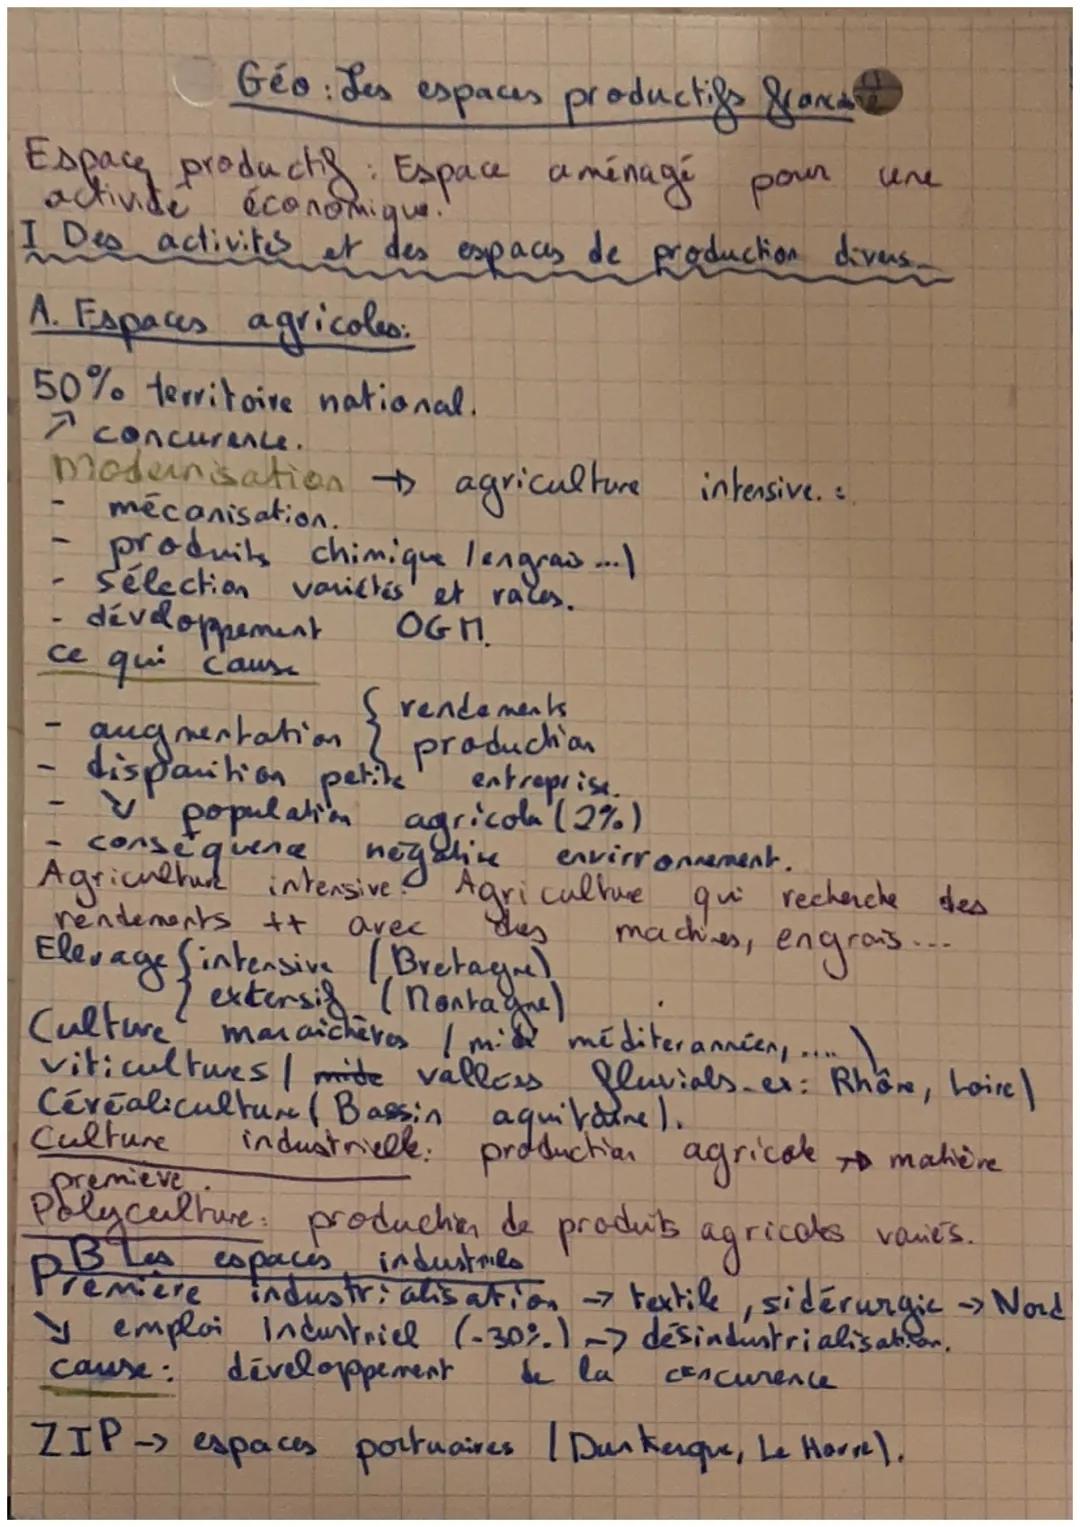 Géo : Les espaces productifs français
Espace productif : Espace aménagé pour une
activité économique.
I Des activités et des espaces de production divers.
A. Espaces agricoles:
50% territoire national.
↗ concurence.
Modernisation → agriculture intensive. :
- mécanisation.
- produits chimique (engrais...)
- sélection variétés et races.
- développement OGM.
ce qui cause
- augmentation { rendements
production
- disparition petite entreprise.
- ↘ population agricola (2%)
- conséquence négative envirronnement.
Agriculture intensive: Agriculture qui recherche des
rendements ++ avec des machines, engrais...
Elevage { intensive (Bretagne)
extensif (Montagne)
Culture maraichères (midi méditerannéen, ....)
viticultures ( mide vallées fluvials. ex: Rhône, Loire)
Céréaliculture (Bassin aquitaine).
Culture industrielle: production agricole → matière
première.
Polyculture: production de produits agricoles variés.
B Les espaces industriels
Première industrialisation → textile, sidérurgie → Nord
↘ emploi industriel (-30%) → désindustrialisation.
cause: développement de la concurence
ZIP → espaces portuaires (Dunkerque, Le Havre).